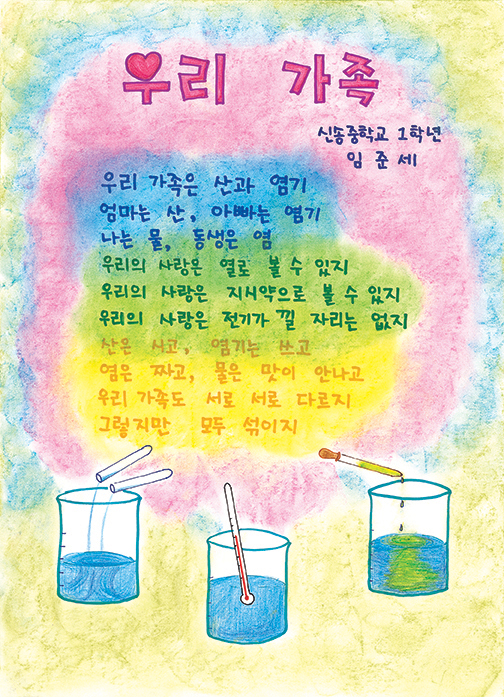 우리 가족
신송중학교 1학년
임준세
우리 가족은 산과 염기
엄마는 산, 아빠는 염기
나는 물, 동생은 염
우리의 사랑은 열로 볼 수 있지
우리의 사랑은 지시약으로 볼 수 있지
우리의 사랑은 전기가 낄 자리는 없지
산은 시고, 염기는 쓰고
염은 짜고, 물은 맛이 안나고
우리 가족도 서로 서로 다르지
그렇지만 모두 섞이지